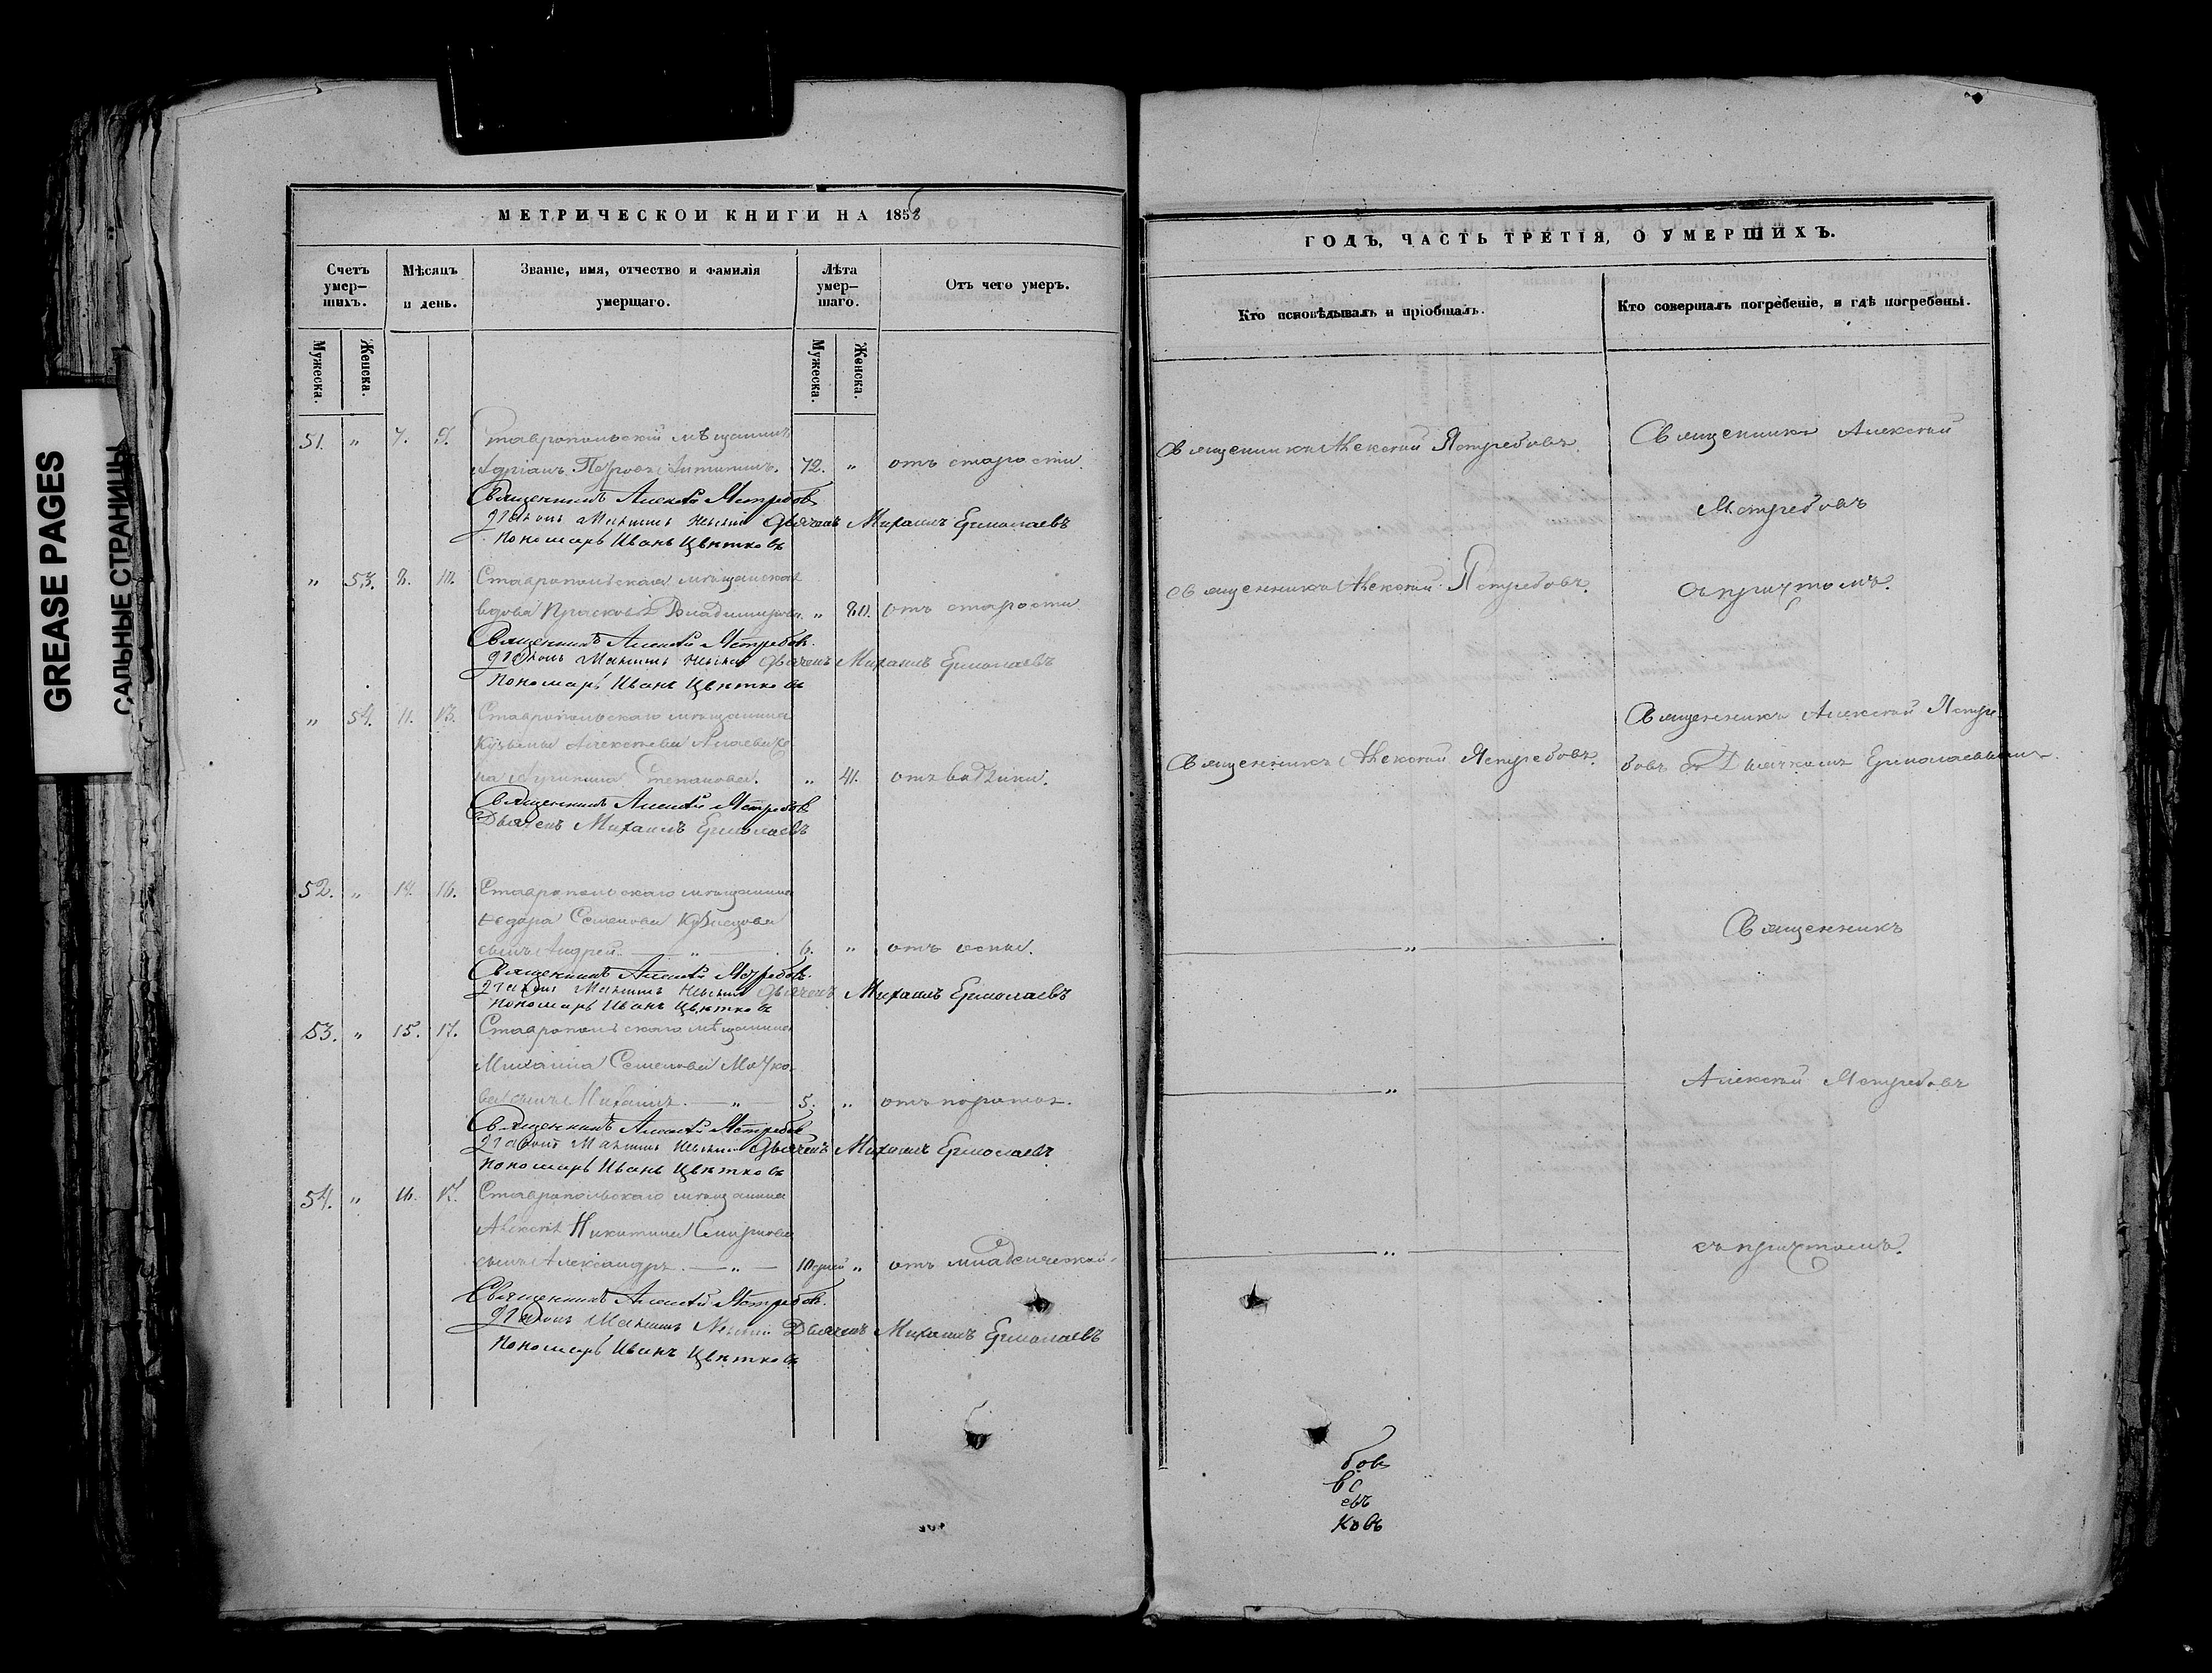 GREASE PAGES
САЛЬНЫЕ СТРАНИЦЫ
МЕТРИЧЕСКОЙ КНИГИ НА 1858
Счетъ умер-шихъ.
Мѣсяцъ и день.
Званіе, имя, отчество и фамилія умершаго.
Лѣта умер-шаго.
Отъ чего умеръ.
Мужеска.
Женска.
Мужеска.
Женска.
51. " 7. 9. Ставропольскій мѣщанинъ
Адріанъ Петровъ 72. " отъ старости.
Священникъ Алексѣй Ястребовъ
Діаконъ Дьячекъ Михаилъ Ермолаевъ
Пономарь Иванъ Цвѣтковъ
" 53. 8. 10. Ставропольская мѣщанская
вдова Прасковья Владимирова. " 80. отъ старости.
Священникъ Алексѣй Ястребовъ.
Діаконъ Дьячекъ Михаилъ Ермолаевъ
Пономарь Иванъ Цвѣтковъ
" 54. 11. 13. Ставропольскаго мѣщанина
Кузьмы Алексѣева же
на Степанова. " 41. отъ водяни.
Священникъ Алексѣй Ястребовъ
Дьячекъ Михаилъ Ермолаевъ
52. " 14. 16. Ставропольскаго мѣщанина
Ѳедора Семенова Кузнецова
сынъ Андрей. — " — 6. " отъ оспы.
Священникъ Алексѣй Ястребовъ.
Діаконъ Дьячекъ Михаилъ Ермолаевъ
Пономарь Иванъ Цвѣтковъ
53. " 15. 17. Ставропольскаго мѣщанина
Михаила Семенова
сынъ Михаилъ. — " — 5. " отъ поноса.
Священникъ Алексѣй Ястребовъ
Діаконъ Дьячекъ Михаилъ Ермолаевъ
Пономарь Иванъ Цвѣтковъ
54. " 16. 17. Ставропольскаго мѣщанина
Алексѣя Никитина Смирнова
сынъ Александръ. — " — 10 дней " отъ младенческой.
Священникъ Алексѣй Ястребовъ.
Діаконъ Дьячекъ Михаилъ Ермолаевъ
Пономарь Иванъ Цвѣтковъ
ГОДЪ, ЧАСТЬ ТРЕТІЯ, О УМЕРШИХЪ.
Кто исповѣдывалъ и пріобщалъ.
Кто совершалъ погребеніе, и гдѣ погребены.
Священникъ Алексѣй Ястребовъ.
Священникъ Алексѣй
Ястребовъ
Священникъ Алексѣй Ястребовъ.
съ причтомъ.
Священникъ Алексѣй Ястре
Священникъ Алексѣй Ястребовъ.
бовъ съ Дьячкомъ Ермолаевымъ.
— " —
Священникъ
— " —
Алексѣй Ястребовъ
— " —
съ причтомъ.
бовъ
въ
евъ
ковъ